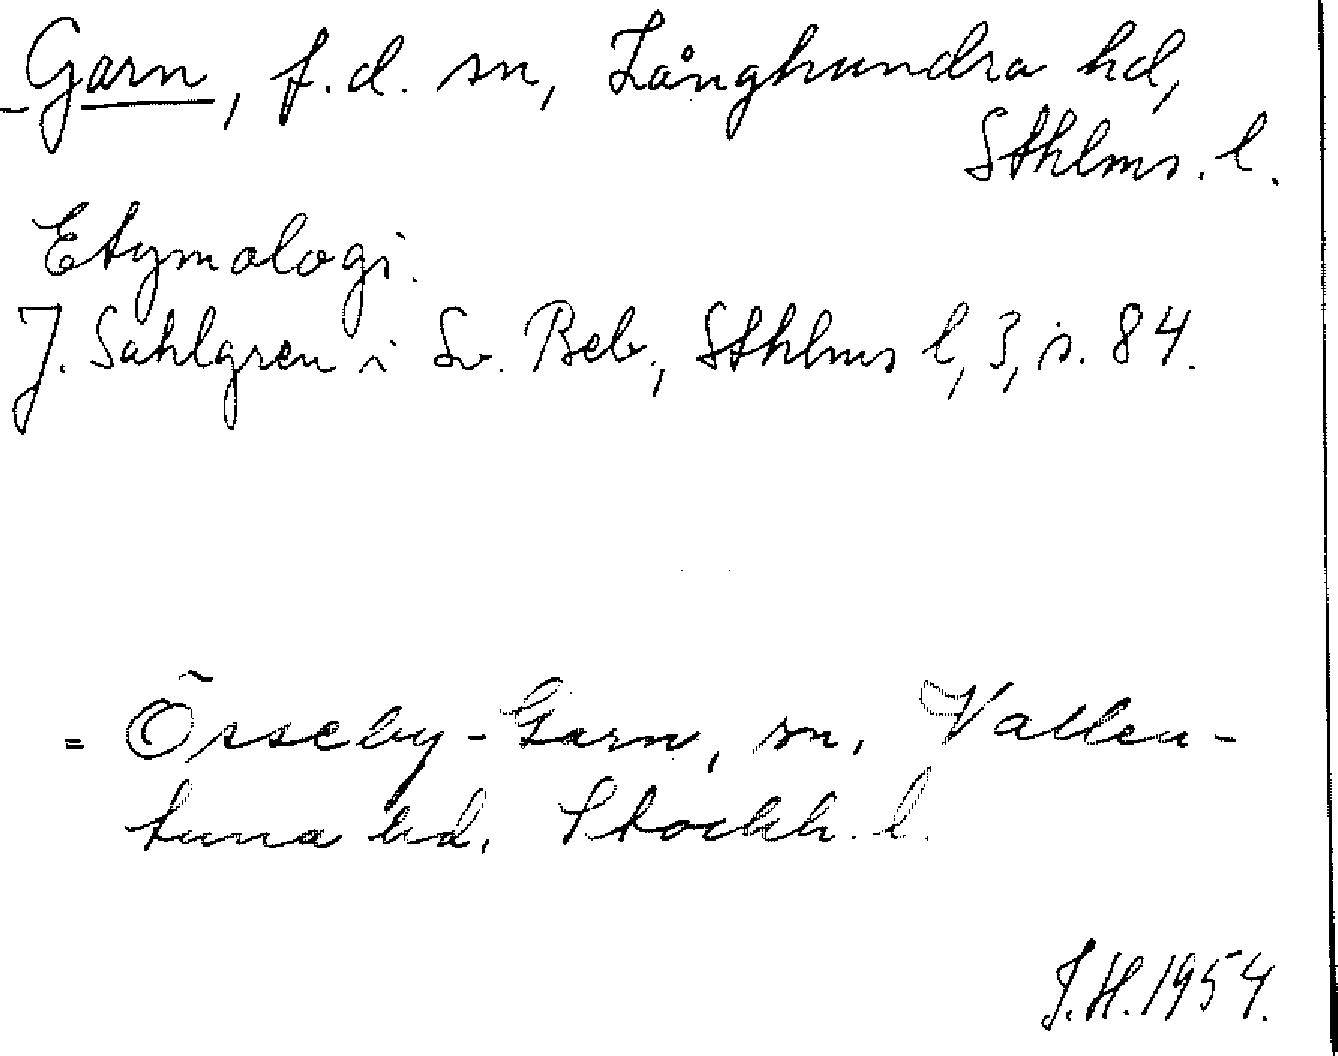 Garn, f.d. sn, Långhundra hd,
Sthlms. l.
Etymologi.
J. Sahlgren i Sv. Beb., Sthlms l, 3, s. 84.
= Össeby-Garn, sn, Vallen-
tuna hd. Stockh. l.
J.H. 1954.